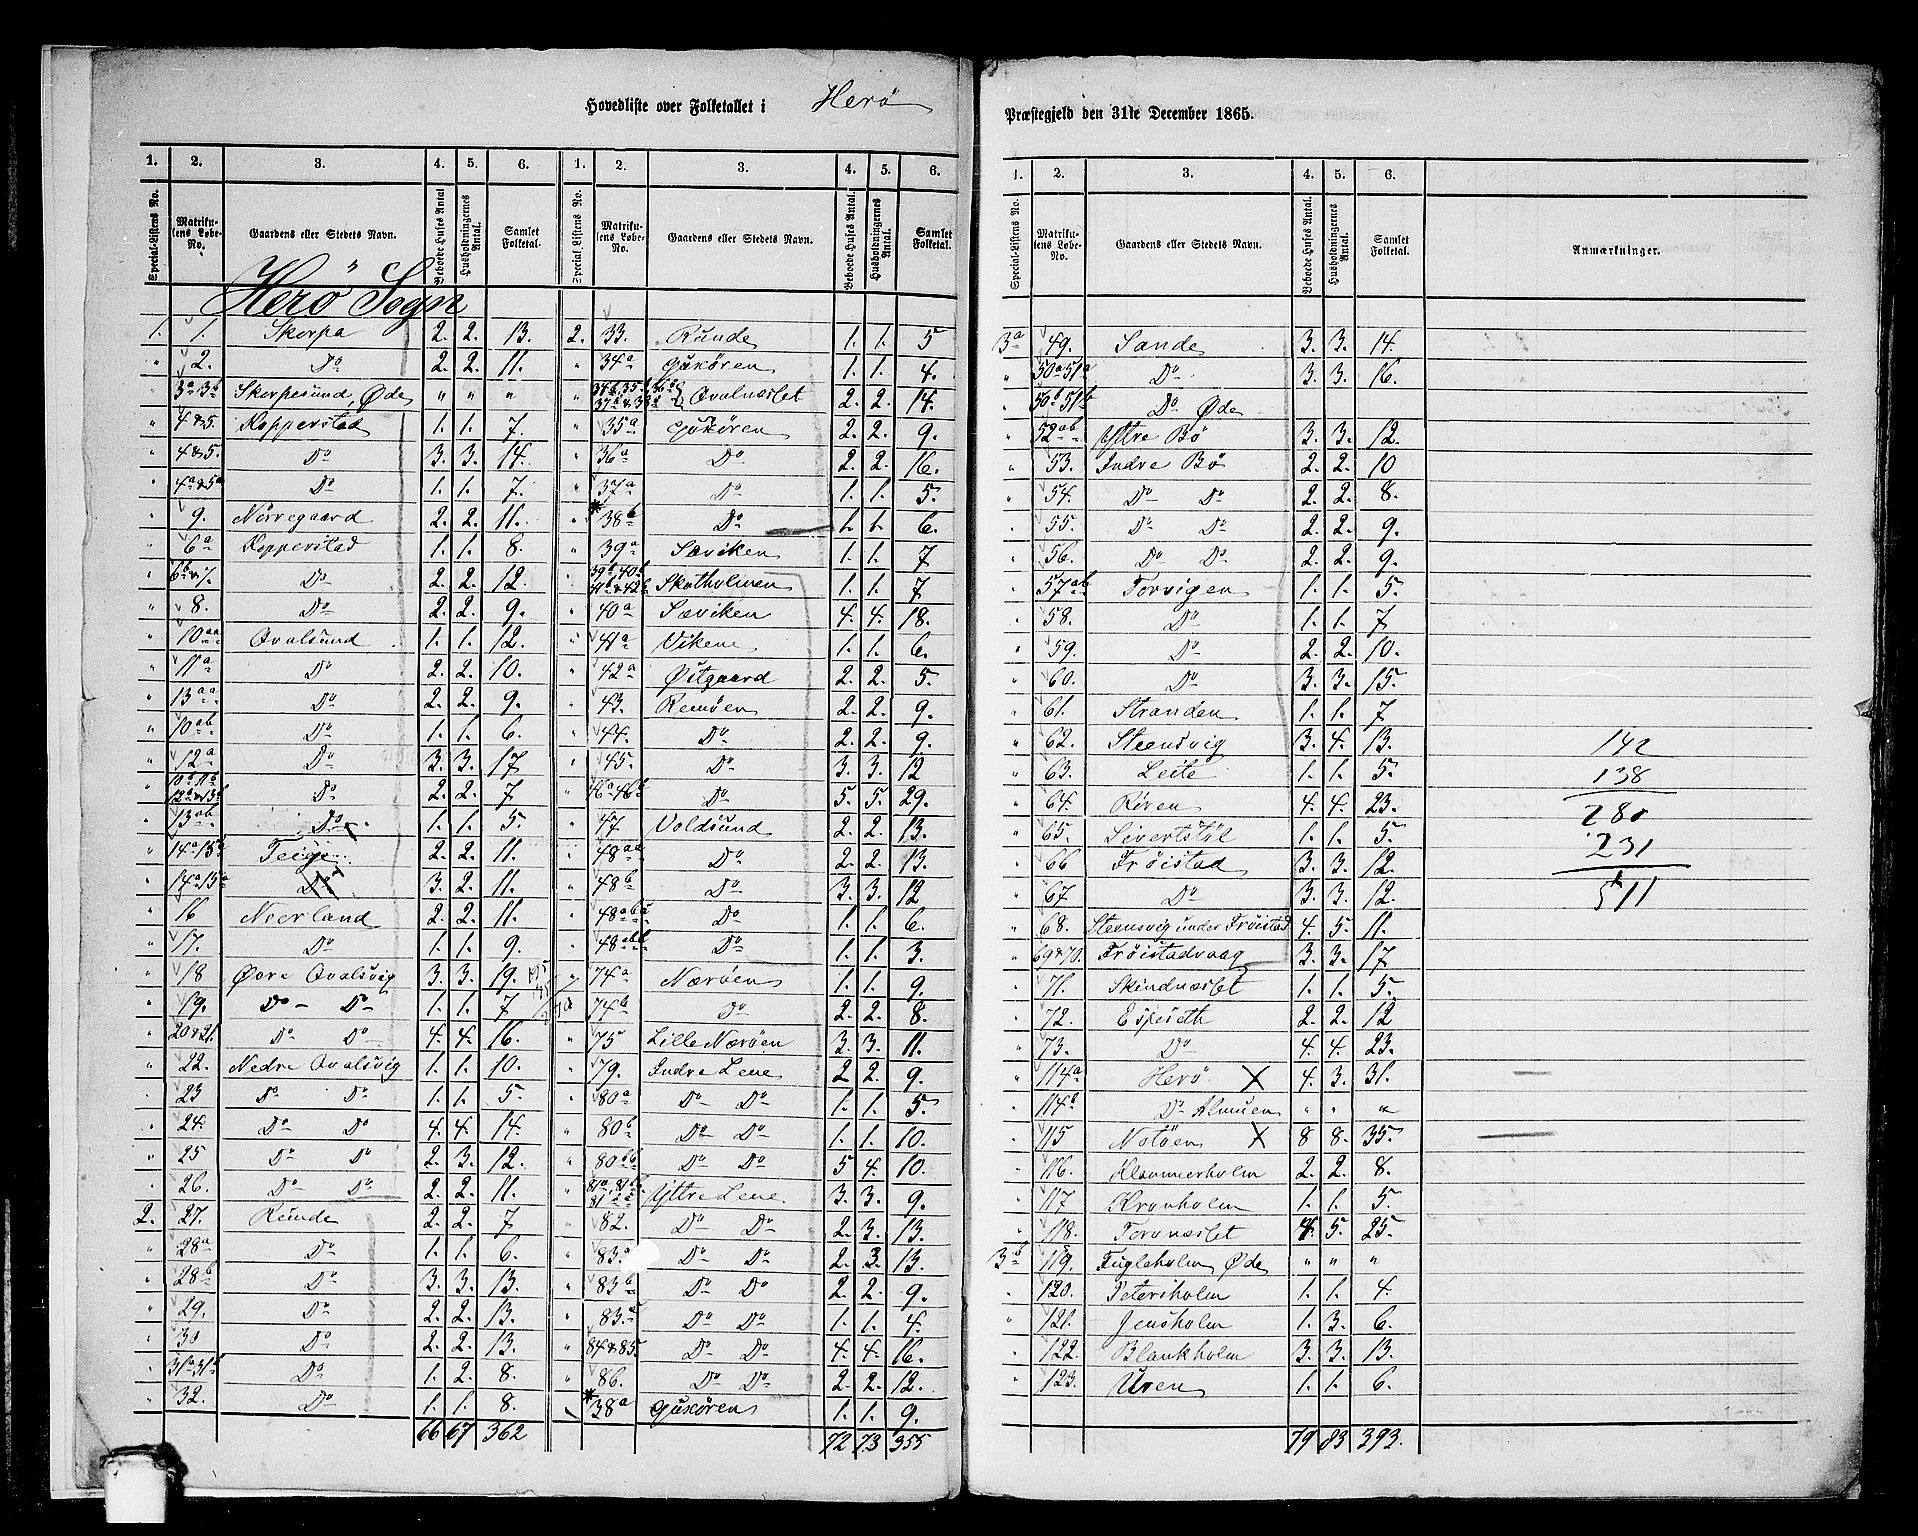 Hovedliste over Folketallet i Herö Præstegjeld den 31te December 1865.
1. 2. 3. 4. 5. 6. 1. 2. 3. 4. 5. 6.
Special-Listens No. Matrikulens Løbe-No. Gaardens eller Stedets Navn. Beboede Huses Antal Husholdningernes Antal. Samlet Folketal. Special-Listens No. Matrikulens Løbe-No. Gaardens eller Stedets Navn. Beboede Huses Antal. Husholdningernes Antal. Samlet Folketal.
Herö Sogn
1. 1. Skorpa 2. 2. 13.
" 2. Do 2. 2. 11.
" 3a 3b Skorpesund, Øde " " "
" 4 & 5. Kopperstad 1. 1. 7.
" 4 & 5. Do 3. 3. 14.
" 4a & 5a Do 1. 1. 7.
" 9. Nørregaard 2. 2. 11.
" 6a Kopperstad 1. 1. 8.
" 6b & 7. Do 2. 2. 12.
" 8. Do 2. 2. 9.
" 10aa Qvalsund 1. 1. 12.
" 11a Do 2. 2. 10.
" 13aa Do 2. 2. 9.
" 10ab Do 1. 1. 6.
" 12a Do 3. 3. 17
" 10b 11b 12b & 13b Do 2. 2. 7
" 13ab Do 1. 1. 5.
" 14a 15a Teige 2. 2. 11.
" 14a 15a Do 3. 2. 11.
" 16 Neerland 2. 2. 11.
" 17. Do 1. 1. 9.
" 18 Øvre Qvalsvig 3. 3. 19.
" 19. Do Do 1. 1. 7
" 20 & 21. Do Do 4. 4. 16.
" 22. Nedre Qvalsvig 1. 1. 10.
" 23 Do Do 1. 1. 5.
" 24. Do Do 4. 4. 14.
" 25 Do Do 2. 3. 12.
" 26. Do Do 2. 2. 11.
2. 27. Runde 2. 2. 7
" 28a Do 1. 1. 6.
" 28b Do 3. 3. 13.
" 29. Do 2. 2. 13.
" 30 Do 2. 2. 13.
" 31a 31b Do 1. 2. 8.
" 32. Do 1. 1. 8.
66 67 362
2. 33. Runde 1. 1. 5
" 34a Gjuxören 1. 1. 4.
34b, 35b, 36b 37b & 38b Qvalnæslet 2. 2. 14.
" 35a Gjuxören 2. 2. 9.
" 36a Do 2. 2. 16.
" 37a Do 1. 1. 5.
" 38b Do 1. 1. 6.
" 39a Sæviken 1. 1. 7
39b 40b 41b & 42b Skotholmen 1. 1. 7
" 40a Sæviken 4. 4. 18.
" 41a Vikene 1. 1. 6.
" 42a Østgaard 2. 2. 5.
" 43. Remøen 2. 2. 9.
" 44. Do 2. 2. 9.
" 45. Do 3. 3. 12
" 46a 46b Do 5. 5. 29.
" 47 Voldsund 2. 2. 13.
" 48aa Do 2. 2. 13.
" 48b Do 3. 3. 12
" 48aba Do 1. 1. 6.
" 48abb Do 1. 1. 3.
74a Nærøen 1. 1. 9.
74b Do 2. 2. 8.
" 75 Lille Nærøen 3. 3. 11.
" 79. Indre Lene 2 2. 9.
" 80a Do Do 1. 1. 5.
" 80b Do Do 1. 1. 10.
" 80bb Do Do 5 4. 10.
" 81a, 81b Yttre Lene 3. 3. 9.
" 82. Do Do 2. 3. 13.
" 83a Do Do 2. 3. 13.
" 83b Do Do 2. 2. 9.
" 83 Do Do 1. 1. 4.
" 84 & 85. Do Do 4. 4. 16.
" 86. Do Do 2. 2. 12.
38a Gjuxören 1. 1. 9.
72 73 355
1. 2. 3. 4. 5. 6.
Special-Listens No. Matrikulens Løbe-No. Gaardens eller Stedets Navn. Beboede Huses Antal. Husholdningernes Antal. Samlet Folketal. Anmærkninger.
3a 49. Sande 3. 3. 14.
" 50a 51a Do 3. 3. 16.
" 50b 51b Do Øde
" 52ab Yttre Bö 3. 3. 12.
" 53. Indre Bö 2. 2. 10
" 54. Do Do 2. 2. 8.
" 55. Do Do 2. 2. 9.
" 56. Do Do 2. 2. 9.
" 57ab Torvigen 1. 1. 5.
" 58. Do 1. 1. 7
" 59. Do 2. 2. 10.
" 60. Do 3. 3. 15.
" 61. Stranden 1. 1. 7
" 62. Steensvig 3. 4. 13.
" 63. Leite 1. 1. 5.
" 64. Røren 4. 4. 23.
" 65. Sivertstöl 1. 1. 5.
" 66 Frøistad 3. 3. 12.
" 67 Do 3. 3. 12.
" 68. Steensvig under Frøistad 4. 5. 11.
" 69 & 70. Frøistadvaag 3. 3. 17
" 71. Skindnæslet 1. 1. 5.
" 72. Espeseth 2. 2. 12
" 73. Do 4. 4. 23.
" 114a Herö X 4. 3. 31.
" 114b Do Almuen " " "
" 115 Notöen X 8 8. 35.
" 116. Hammerholm 2. 2. 8.
" 117 Kronholm 1. 1. 5.
" 118. Torvnæslet 4. 5. 25.
3b 119. Fugleholm, Øde " " "
" 120. Petersholm 1. 1. 4.
" 121. Jensholm 1. 3. 6.
" 122. Blankholm 3. 3. 13.
" 123. Uren 1. 1. 6.
79 83 393.
142
138
280
231
511